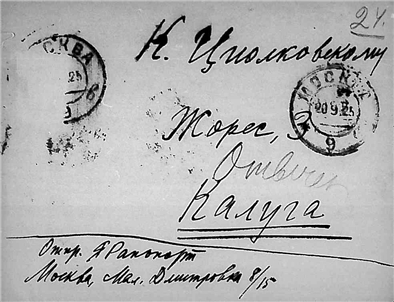 24.
МОСКВА
К. Циолковскому
МОСКВА
20.9.25
9
Жорес, 3
Калуга
Отпр. Я Рапопорт
Москва, Мал. Дмитровка 8/15